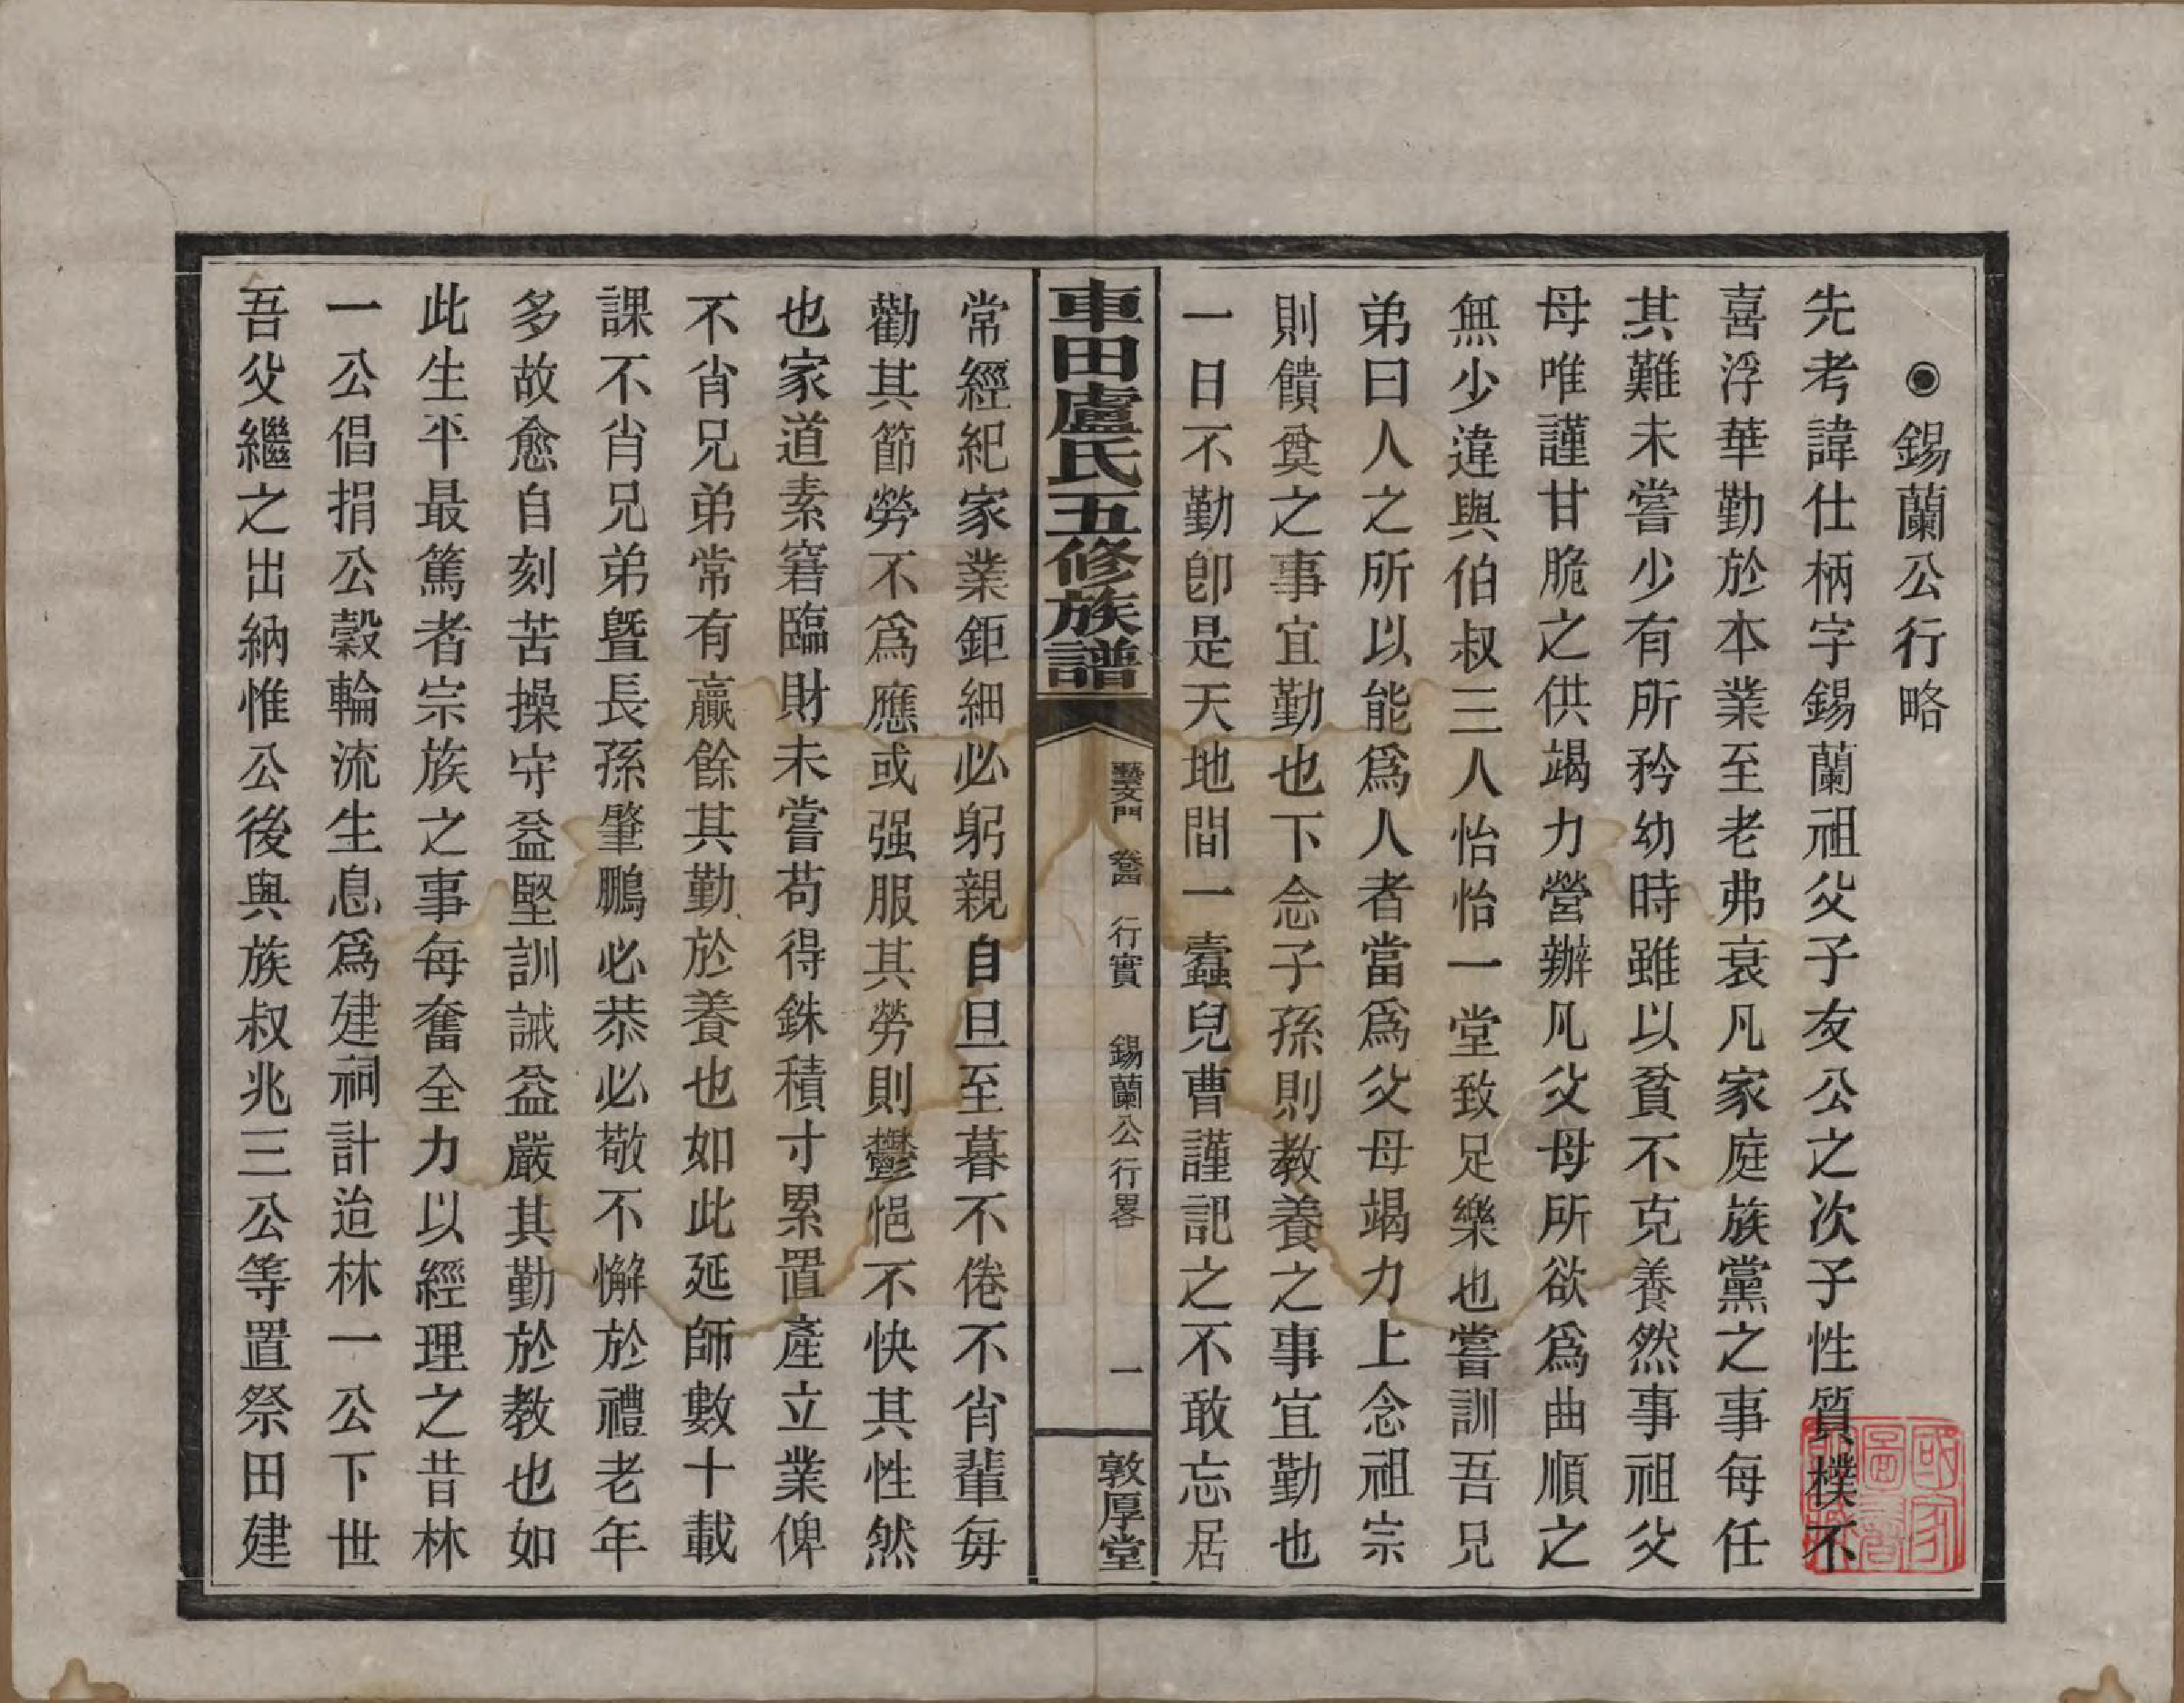 ◉錫蘭公行略
先考諱仕柄字錫蘭祖父子友公之次子性質樸不
喜浮華勤於本業至老弗衰凡家庭族黨之事每任
其難未嘗少有所矜幼時雖以貧不克養然事祖父
母唯謹甘脆之供竭力營辦凡父母所欲爲曲順之
無少違與伯叔三人怡怡一堂致足樂也嘗訓吾兄
弟曰人之所以能爲人者當爲父母竭力上念祖宗
則饋奠之事宜勤也下念子孫則教養之事宜勤也
一日不勤卽是天地間一蠹兒曹謹記之不敢忘居
車田盧氏五修族譜
藝文門 卷四 行實 錫蘭公行畧
一
敦厚堂
常經紀家業鉅細必躬親自旦至暮不倦不肖輩每
勸其節勞不爲應或强服其勞則鬱悒不快其性然
也家道素窘臨財未嘗苟得銖積寸累置產立業俾
不肖兄弟常有贏餘其勤於養也如此延師數十載
課不肖兄弟暨長孫肇鵬必恭必敬不懈於禮老年
多故愈自刻苦操守益堅訓誡益嚴其勤於教也如
此生平最篤者宗族之事每奮全力以經理之昔林
一公倡捐公穀輪流生息爲建祠計迨林一公下世
吾父繼之出納惟公後與族叔兆三公等置祭田建
國家圖書